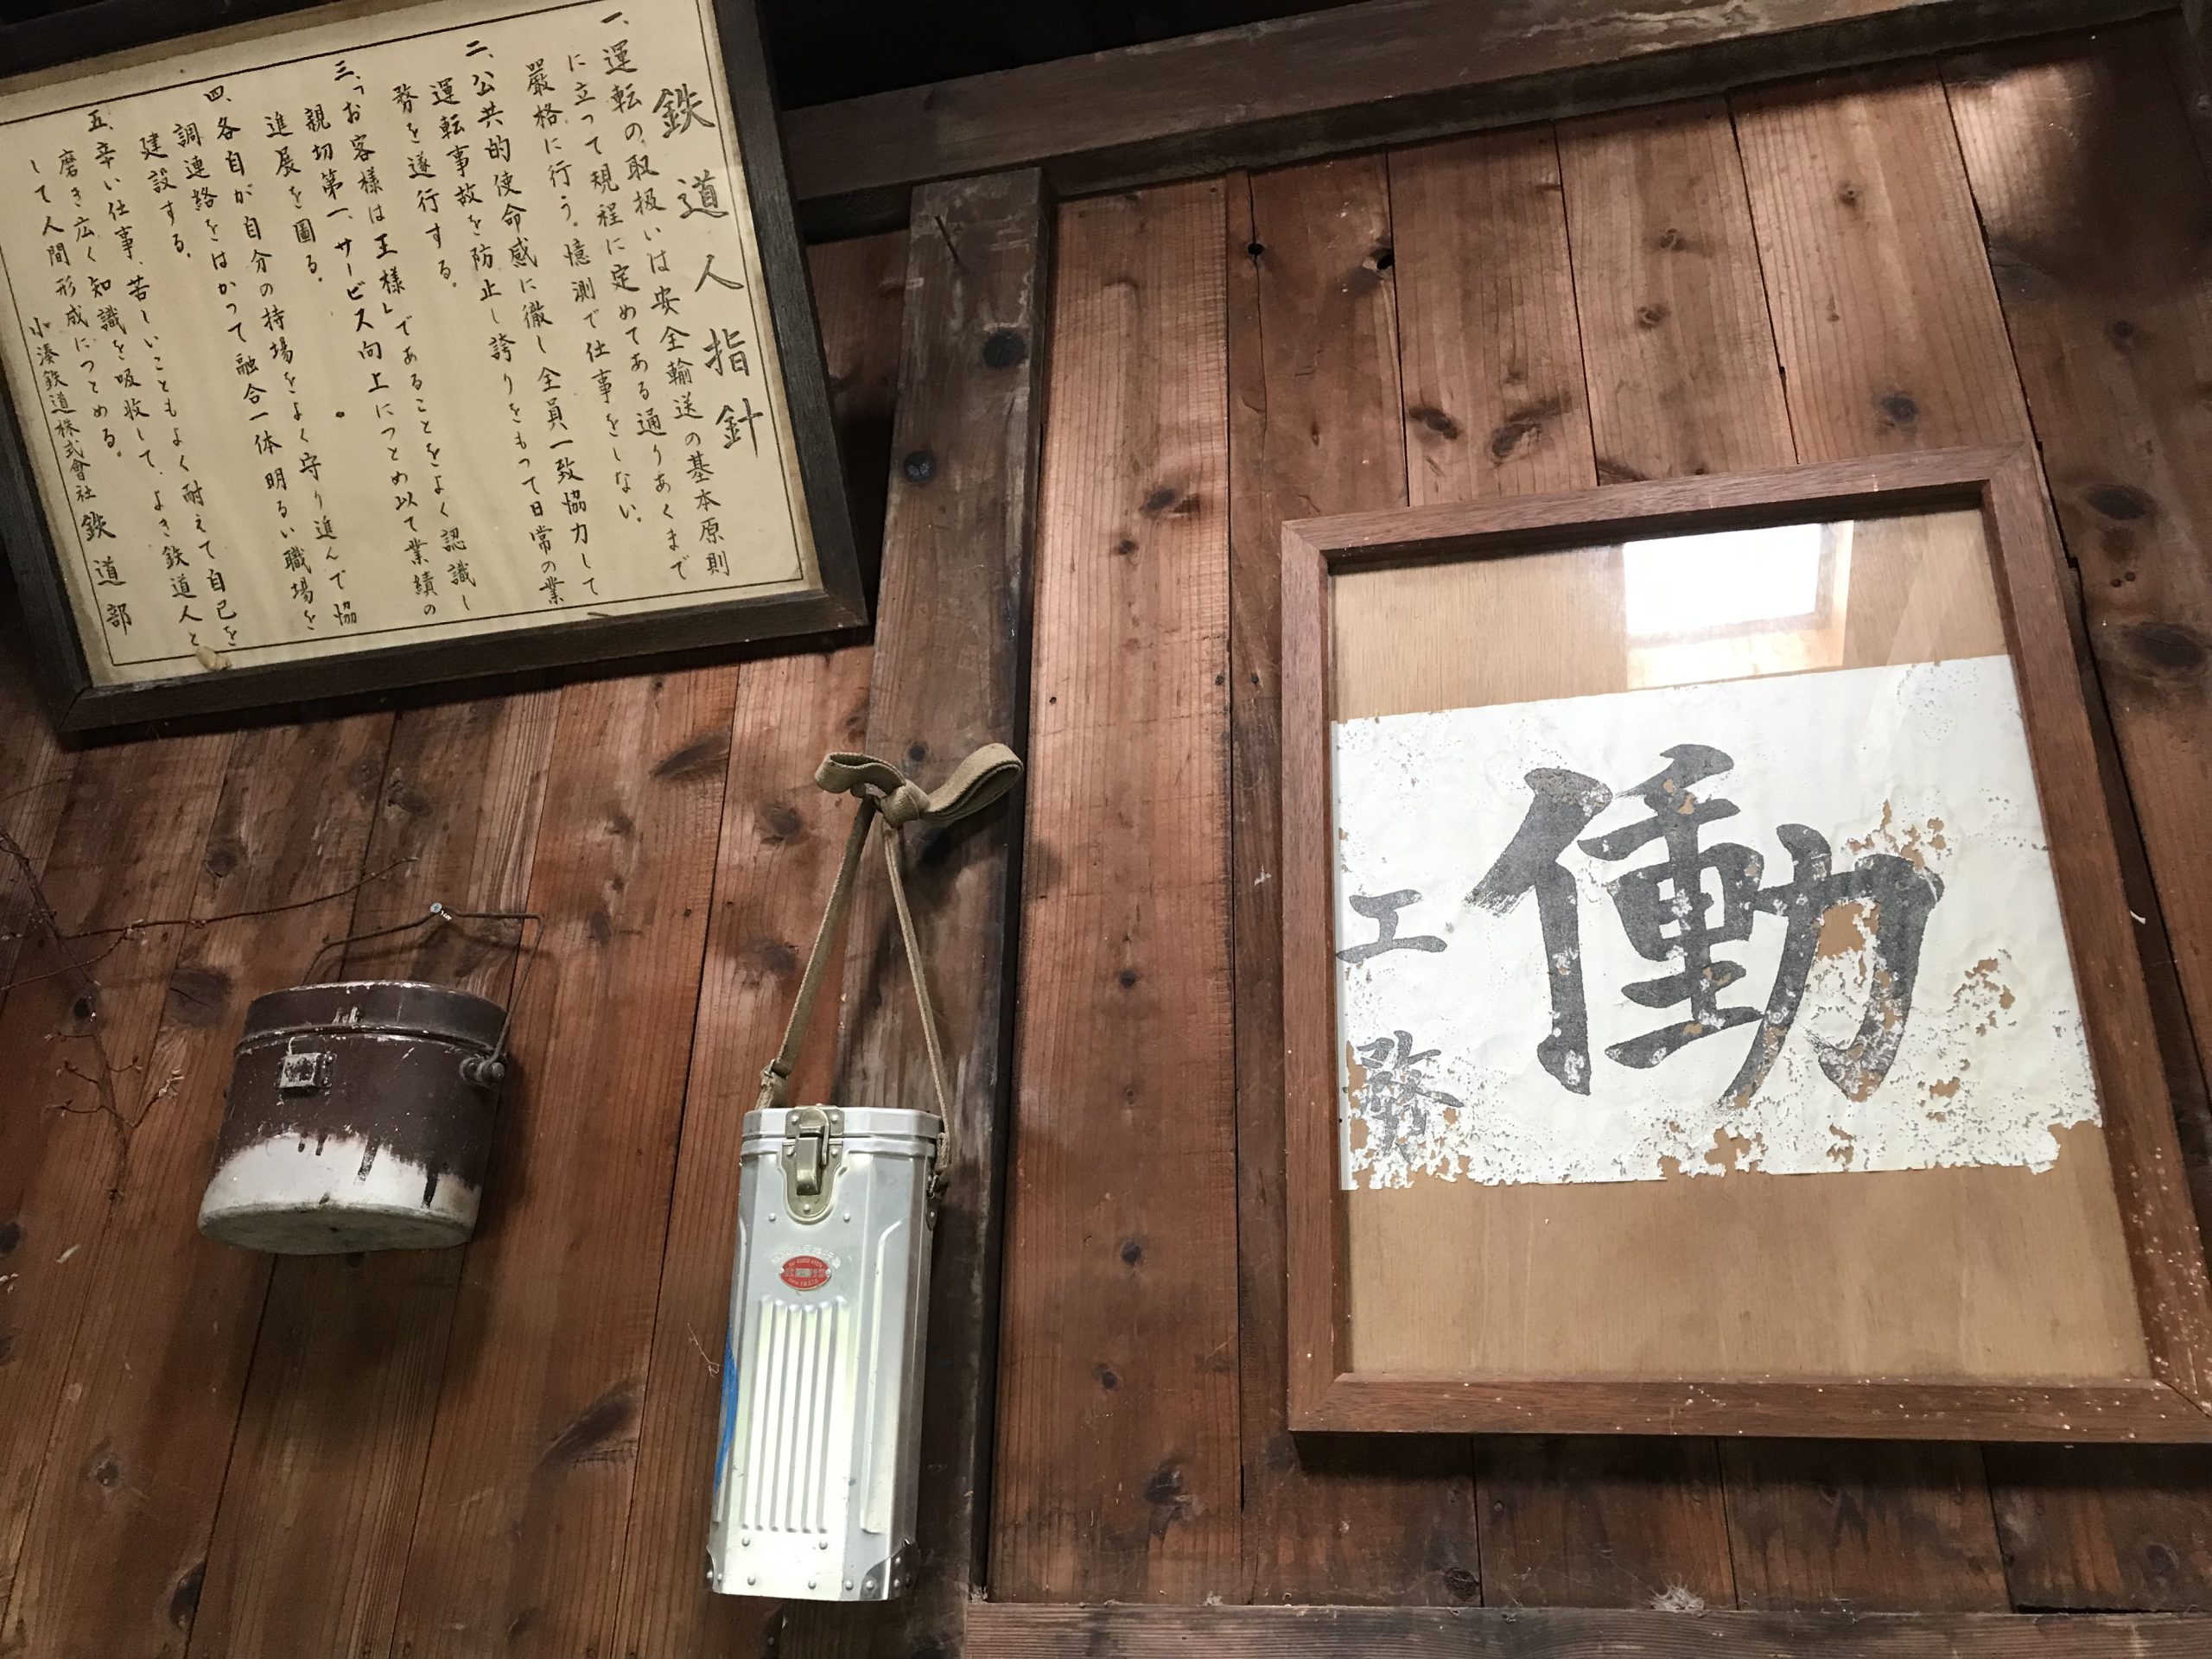 鉄道人指針
一、運転の取扱いは安全輸送の基本原則
に立って規程に定めてある通りあくまで
嚴格に行う。憶測で仕事をしない。
二、公共的使命感に徹し全員一致協力して
運転事故を防止し誇りをもって日常の業
務を遂行する。
三、「お客様は王様」であることをよく認識し
親切第一、サービス向上につとめ以て業績の
進展を圖る。
四、各自が自分の持場をよく守り進んで協
調連絡をはかって融合一体明るい職場を
建設する。
五、辛い仕事、苦しいこともよく耐えて自己を
磨き広く知識を吸收して、よき鉄道人と
して人間形成につとめる。
小湊鉄道株式會社 鉄道部
働
工務